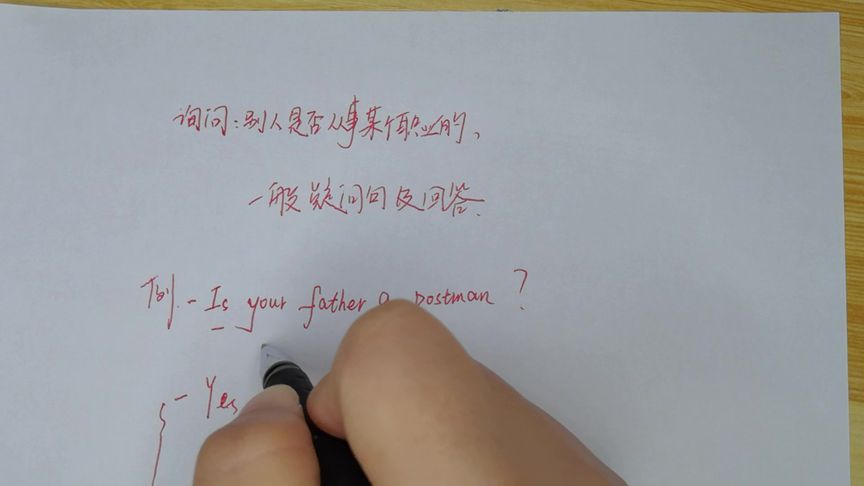 询问:别人是否从事某个职业的、
一般疑问句及回答、
例.- Is your father a postman ?
- Yes